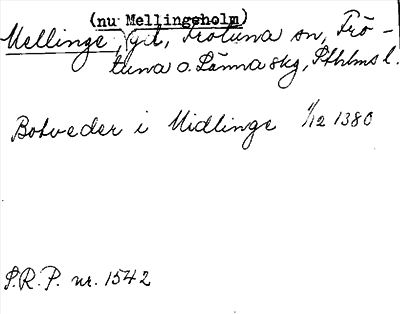 (nu Mellingeholm)
Mellinge, gd, Frötuna sn, Frö-
tuna o. Länna skg, Sthlms l.
Botveder i Midlinge 1/12 1380
S.R.P. nr. 1542